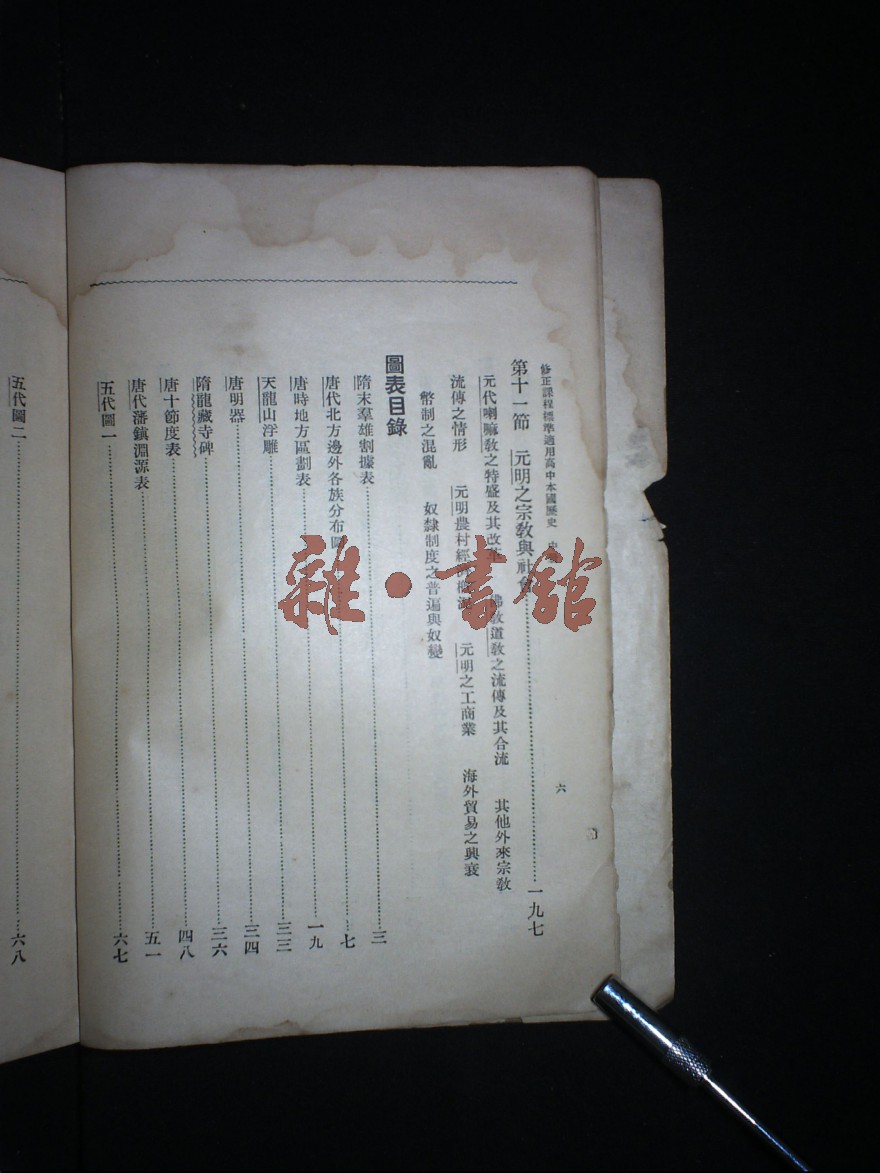 修正課程標準適用高中本國歷史
六
第十一節 元明之宗敎與社會 一九七
元代喇嘛敎之特盛及其改 佛敎道敎之流傳及其合流 其他外來宗敎
流傳之情形 元明農村經 元明之工商業 海外貿易之興衰
幣制之混亂 奴隸制度之普遍與奴變
圖表目錄
隋末羣雄割據表 三
唐代北方邊外各族分布圖 七
唐時地方區劃表 一九
天龍山浮雕 三三
唐明器 三四
隋龍藏寺碑 三六
唐十節度表 四八
唐代潘鎮淵源表 五一
五代圖一 六七
五代圖二 六八
雜·書館